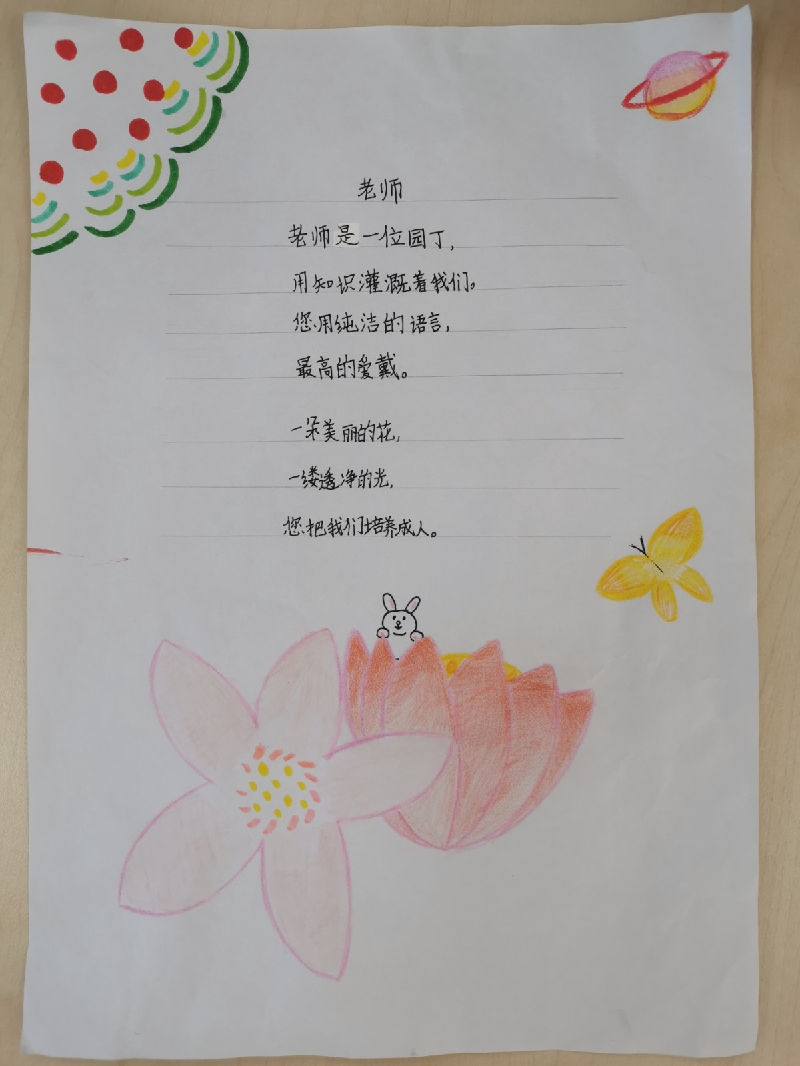 老师
老师是一位园丁,
用知识灌溉着我们。
您用纯洁的语言,
最高的爱戴。
一朵美丽的花,
一缕透净的光,
您把我们培养成人。